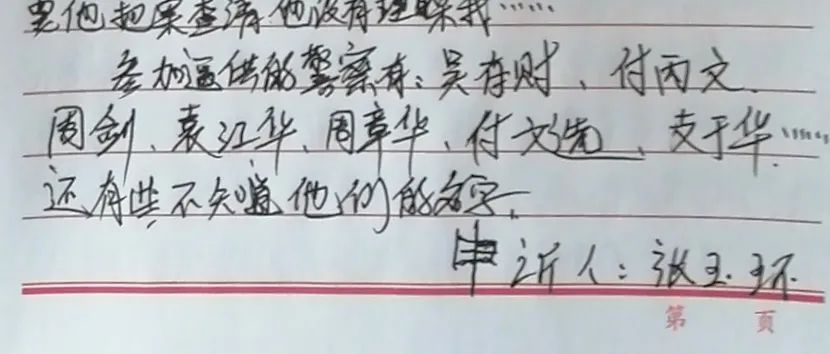 要他把案查清他没有理睬我……
参加逼供的警察有：吴存财、付丙文、
周剑、袁江华、周章华、付文先、支于华……
还有些不知道他们的名字。
申诉人：张玉环
第 页